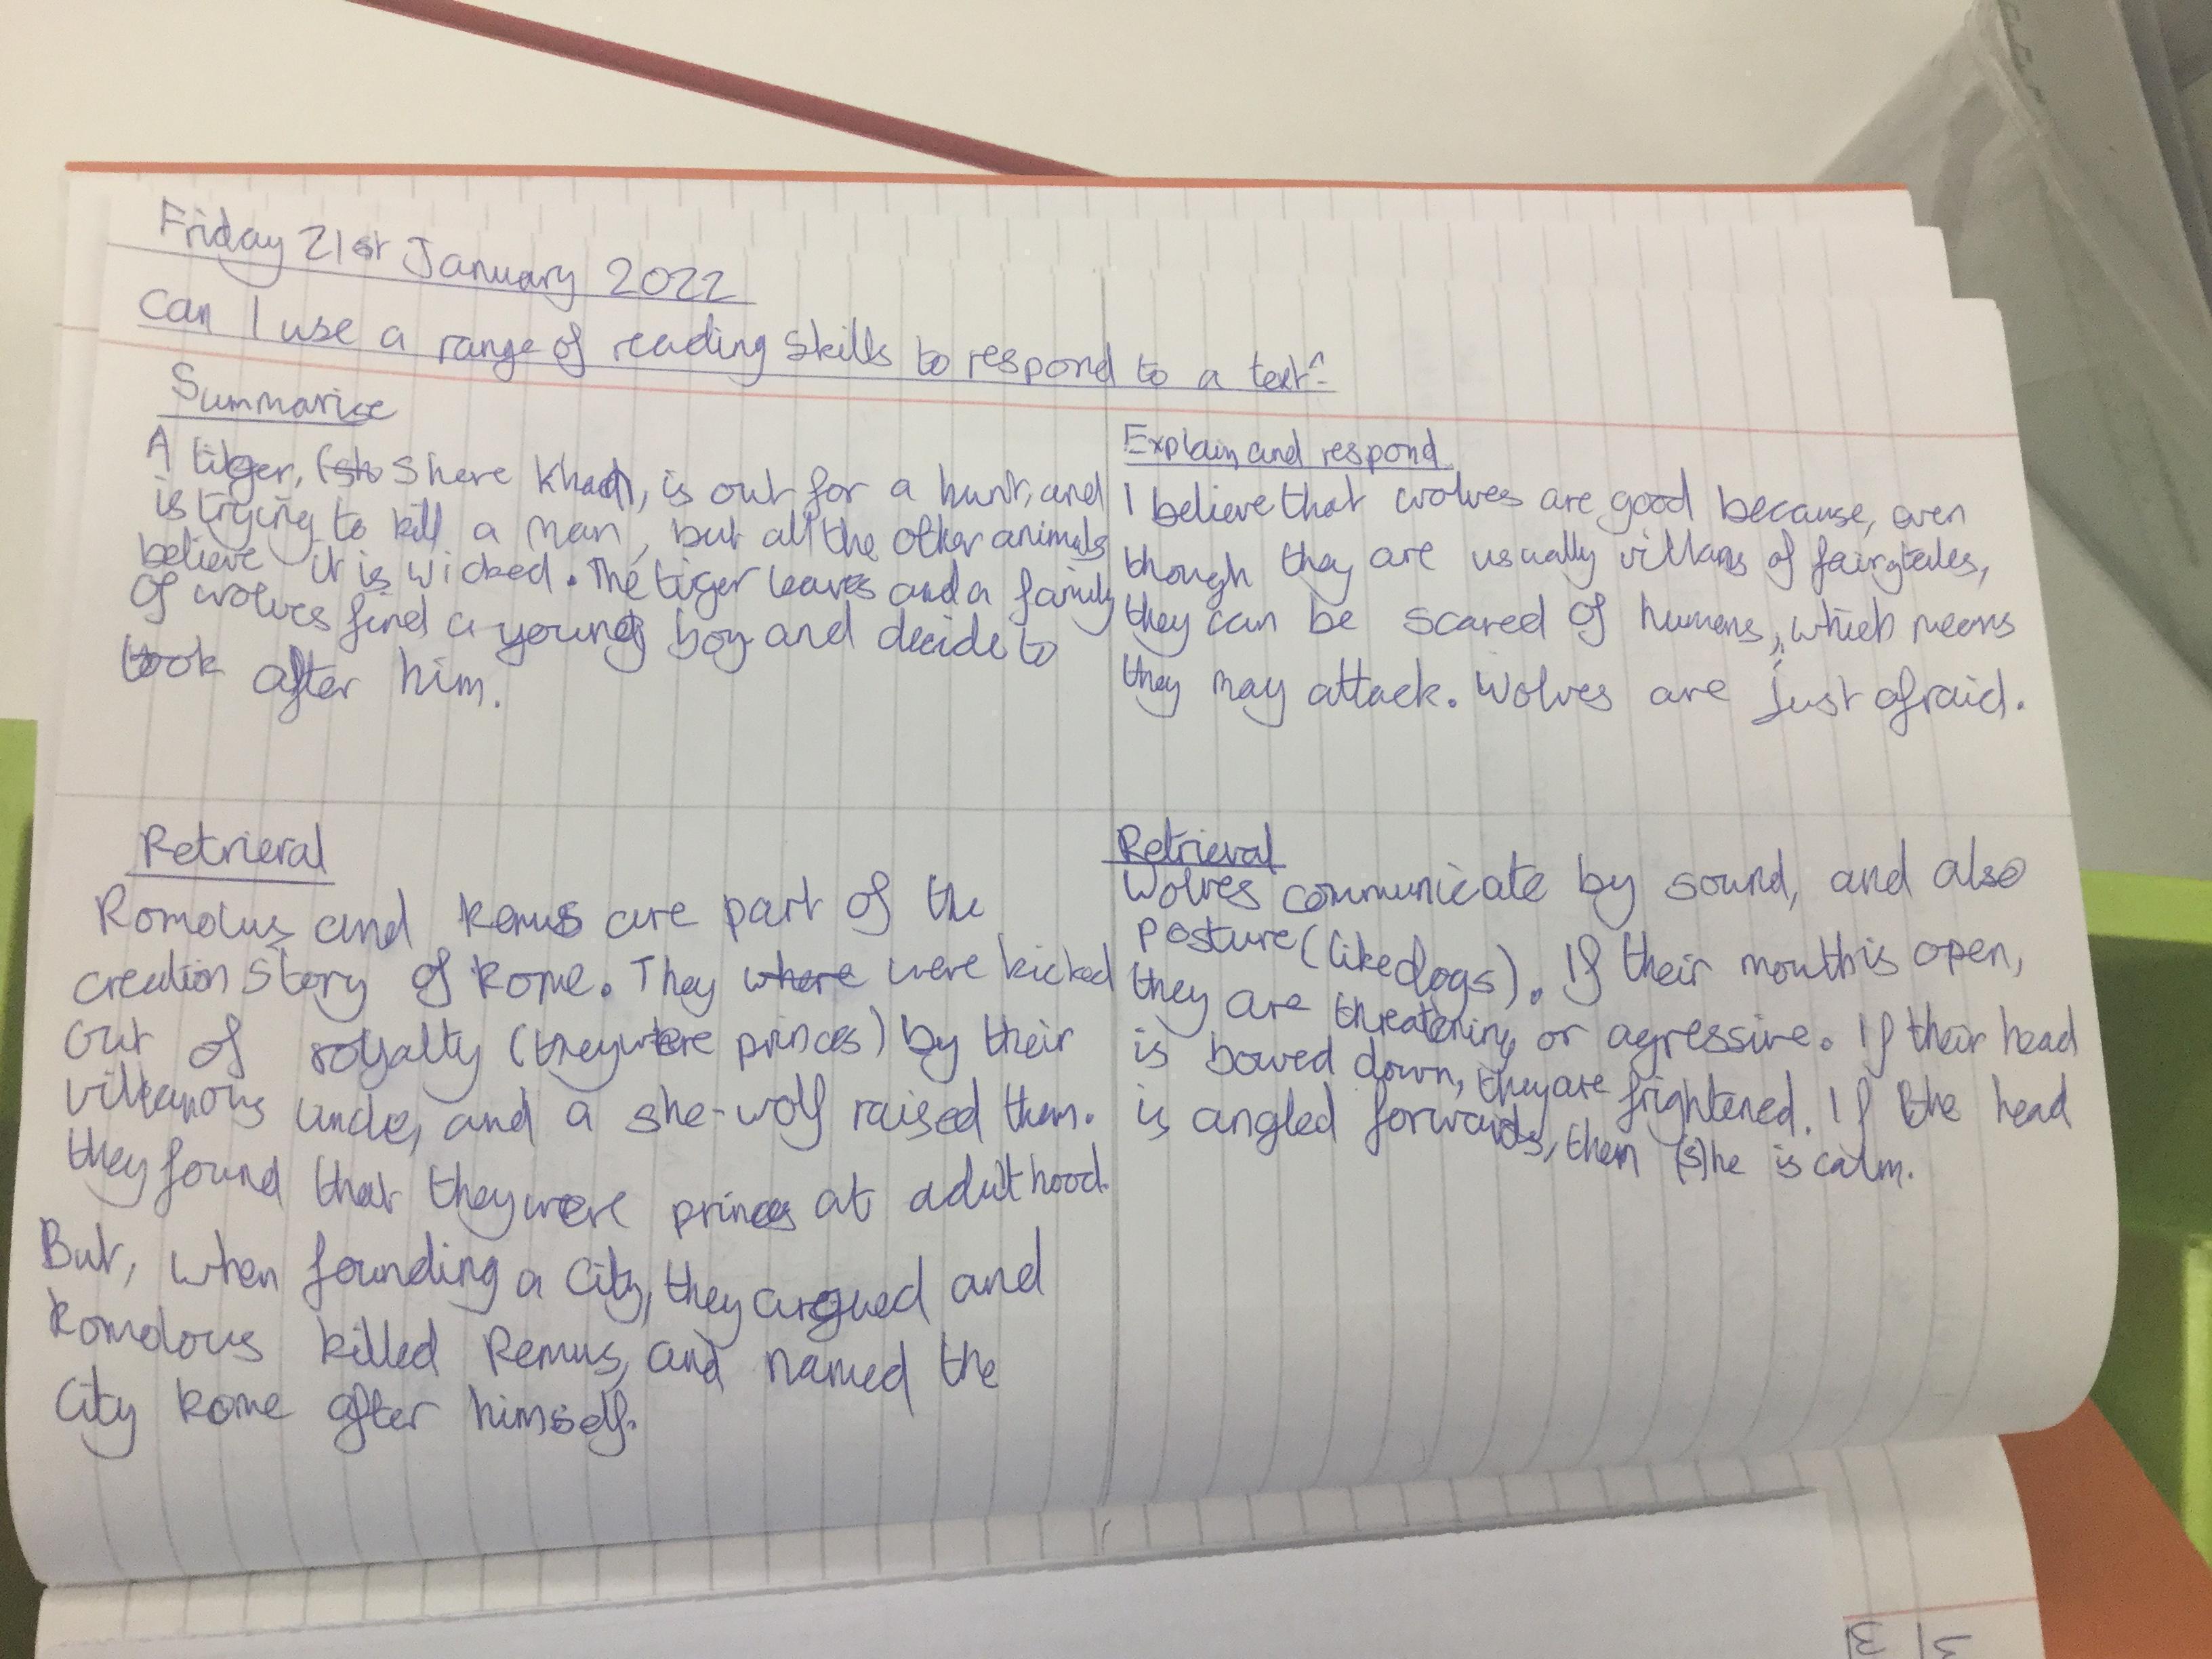 Friday 21st January 2022
Can I use a range of reading skills to respond to a text?
Summarise
A tiger, Shere Khan, is out for a hunt, and
is trying to kill a man, but all the other animals
believe it is wicked. The tiger leaves and a family
of wolves find a young boy and decide to
look after him.
Explain and respond
I believe that wolves are good because, even
though they are usually villans of fairytales,
they can be scared of humans, which means
they may attack. Wolves are just afraid.
Retrieral
Romolus and Remus are part of the
creation story of Rome. They where were kicked
out of royalty (they were princes) by their
villanous uncle, and a she-wolf raised them.
they found that they were princes at adulthood.
But, when founding a city, they argued and
Romolous killed Remus, and named the
City Rome after himself.
Retrieval
Wolves communicate by sound, and also
posture (like dogs). If their mouth is open,
they are threatening or agressive. If their head
is bowed down, they are frightened. If the head
is angled forwards, then (s)he is calm.